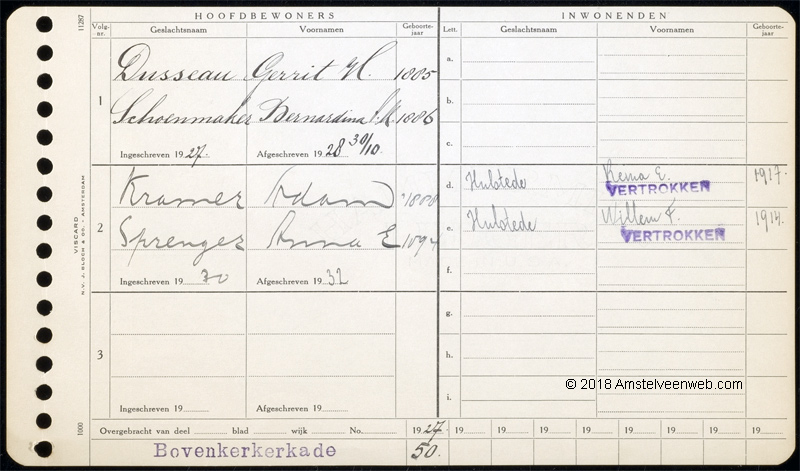 HOOFDBEWONERS INWONENDEN
Volg-nr. Geslachtsnaam Voornamen Geboorte-jaar Lett. Geslachtsnaam Voornamen Geboorte-jaar
11287
a.
Dusseau Gerrit H. 1885
b.
1
Schoenmaker Bernardina 1886
c.
Ingeschreven 1927. Afgeschreven 1928 30/10
Kramer Adam
d. Hulstede E. 1917.
VERTROKKEN
2
Sprenger Anna E 1894
e. Hulstede Willem F. 1914.
VERTROKKEN
f.
Ingeschreven 19 30 Afgeschreven 19 32
VISCARD
N.V. J. BLOCH & CO. - AMSTERDAM
g.
3
h.
i.
Ingeschreven 19 Afgeschreven 19
© 2018 Amstelveenweb.com
1000
Overgebracht van deel blad wijk No. 1927. 19 19 19 19 19 19 19 19
Bovenkerkerkade 50.